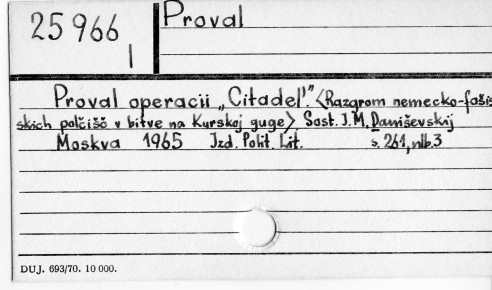 25966 Proval
I
Proval operacii „Citadel'". <Razgrom nemecko-fašis
skich polčišč v bitve na Kurskoj guge> Sost. I.M. Daniševskij
Moskva 1965 Izd. Polit. Lit. s. 261, nlb.3
DUJ. 693/70. 10 000.